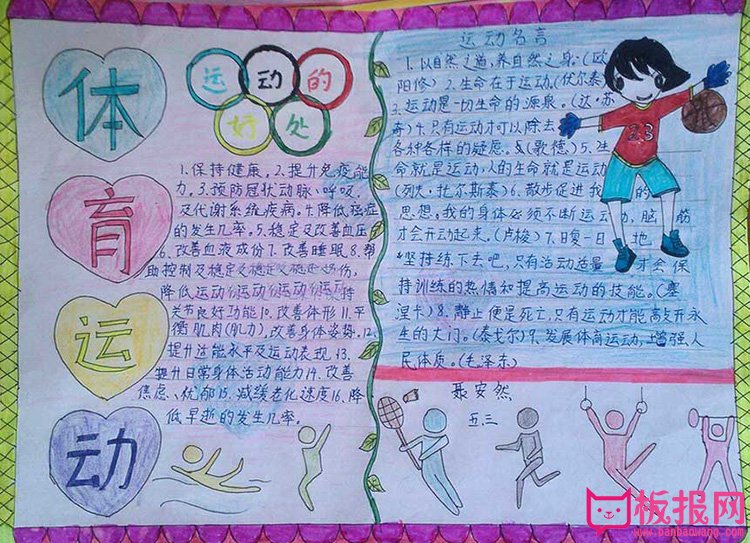 体
育
运
动
运动的
好处
1.保持健康。2.提升免疫能
力。3.预防冠状动脉、呼吸
及代谢系统疾病。4.降低癌症
的发生几率。5.稳定及改善血压
6.改善血液成份7.改善睡眠8.帮
助控制及稳定
降低运动
关节良好功能10.改善体形11.平
衡肌肉(肌力),改善身体姿势。12.
提升达能水平及运动表现13.
提升日常身体活动能力14.改善
焦虑、忧郁15.减缓老化速度16.降
低早逝的发生几率。
运动名言
1.以自然之道,养自然之身。(欧
阳修) 2.生命在于运动。(伏尔泰)
3.运动是一切生命的源泉。(达·芬
奇)4.只有运动才可以除去
各种各样的疑虑。(歌德)5.生
命就是运动,人的生命就是运动
(列夫·托尔斯泰)6.散步促进我的
思想。我的身体必须不断运动,脑筋
才会开动起来。(卢梭)7.日复一日地
坚持练下去吧,只有活动适量才会保
持训练的热情和提高运动的技能。(塞
涅卡)8.静止便是死亡,只有运动才能敲开永
生的大门。(泰戈尔)9.发展体育运动,增强人
民体质。(毛泽东)
23
聂安然
五.三
板报网
www.banbaowang.com